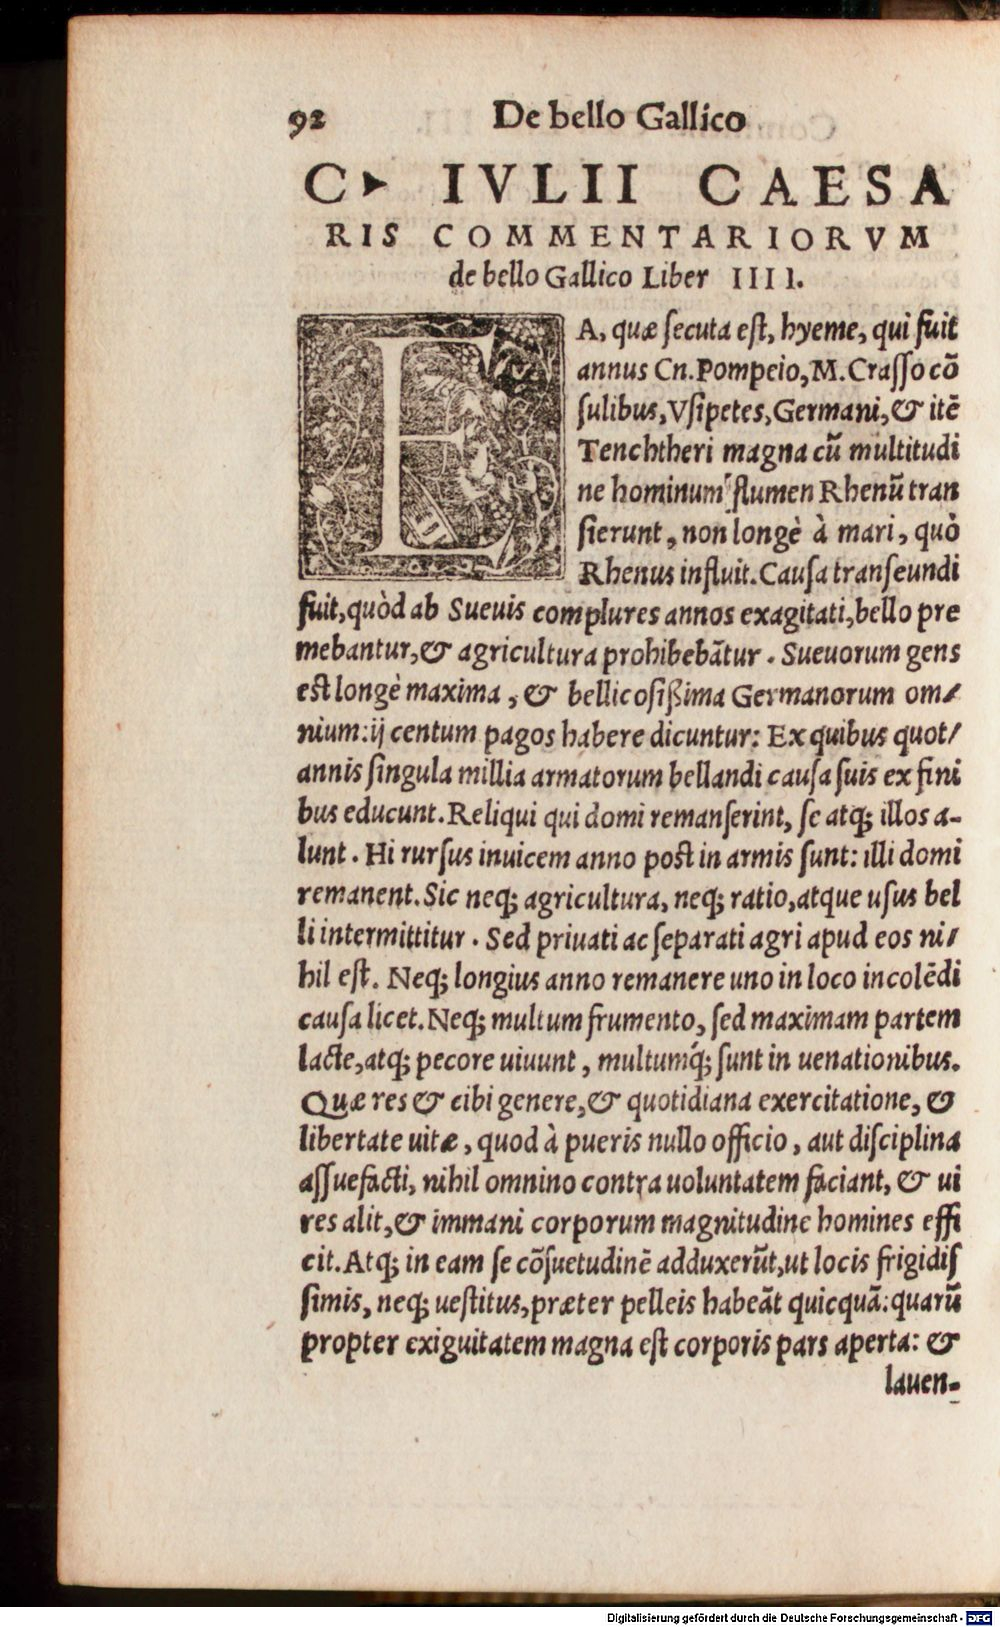 92 De bello Gallico
C‣ IVLII CAESA
RIS COMMENTARIORVM
de bello Gallico Liber IIII.
EA, quæ ſecuta eſt, hyeme, qui fuit
annus Cn.Pompeio, M.Craſſo cõ
ſulibus, Vſipetes, Germani, & itẽ
Tenchtheri magna cũ multitudi
ne hominum flumen Rhenũ tran
ſierunt, non longè à mari, quò
Rhenus influit. Cauſa tranſeundi
fuit, quòd ab Sueuis complures annos exagitati, bello pre
mebantur, & agricultura prohibebãtur. Sueuorum gens
eſt longè maxima, & bellicoſißima Germanorum om⸗
nium: ij centum pagos habere dicuntur: Ex quibus quot⸗
annis ſingula millia armatorum bellandi cauſa ſuis ex fini
bus educunt. Reliqui qui domi remanſerint, ſe atq; illos a-
lunt. Hi rurſus inuicem anno poſt in armis ſunt: illi domi
remanent. Sic neq; agricultura, neq; ratio, atque uſus bel
li intermittitur. Sed priuati ac ſeparati agri apud eos ni⸗
hil eſt. Neq; longius anno remanere uno in loco incolẽdi
cauſa licet. Neq; multum frumento, ſed maximam partem
lacte, atq; pecore uiuunt, multumq́; ſunt in uenationibus.
Quæ res & cibi genere, & quotidiana exercitatione, &
libertate uitæ, quod à pueris nullo officio, aut diſciplina
aſſuefacti, nihil omnino contra uoluntatem faciant, & ui
res alit, & immani corporum magnitudine homines effi
cit. Atq; in eam ſe cõſuetudinẽ adduxerũt, ut locis frigidiſ
ſimis, neq; ueſtitus, præter pelleis habeãt quicquã: quarũ
propter exiguitatem magna eſt corporis pars aperta: &
lauen-
Digitalisierung gefördert durch die Deutsche Forschungsgemeinschaft - DFG